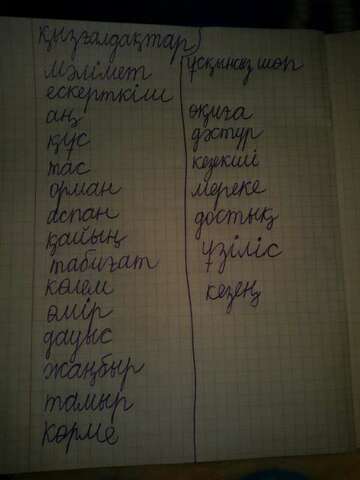 қызғалдақтар
мәлімет
ескерткіш
аң
құс
тас
орман
аспан
қайың
табиғат
көлем
өмір
дауыс
жаңбыр
тамыр
көрме
ұсқынсыз шөп
оқиға
дәстүр
кезекші
мереке
достық
үзіліс
кезең